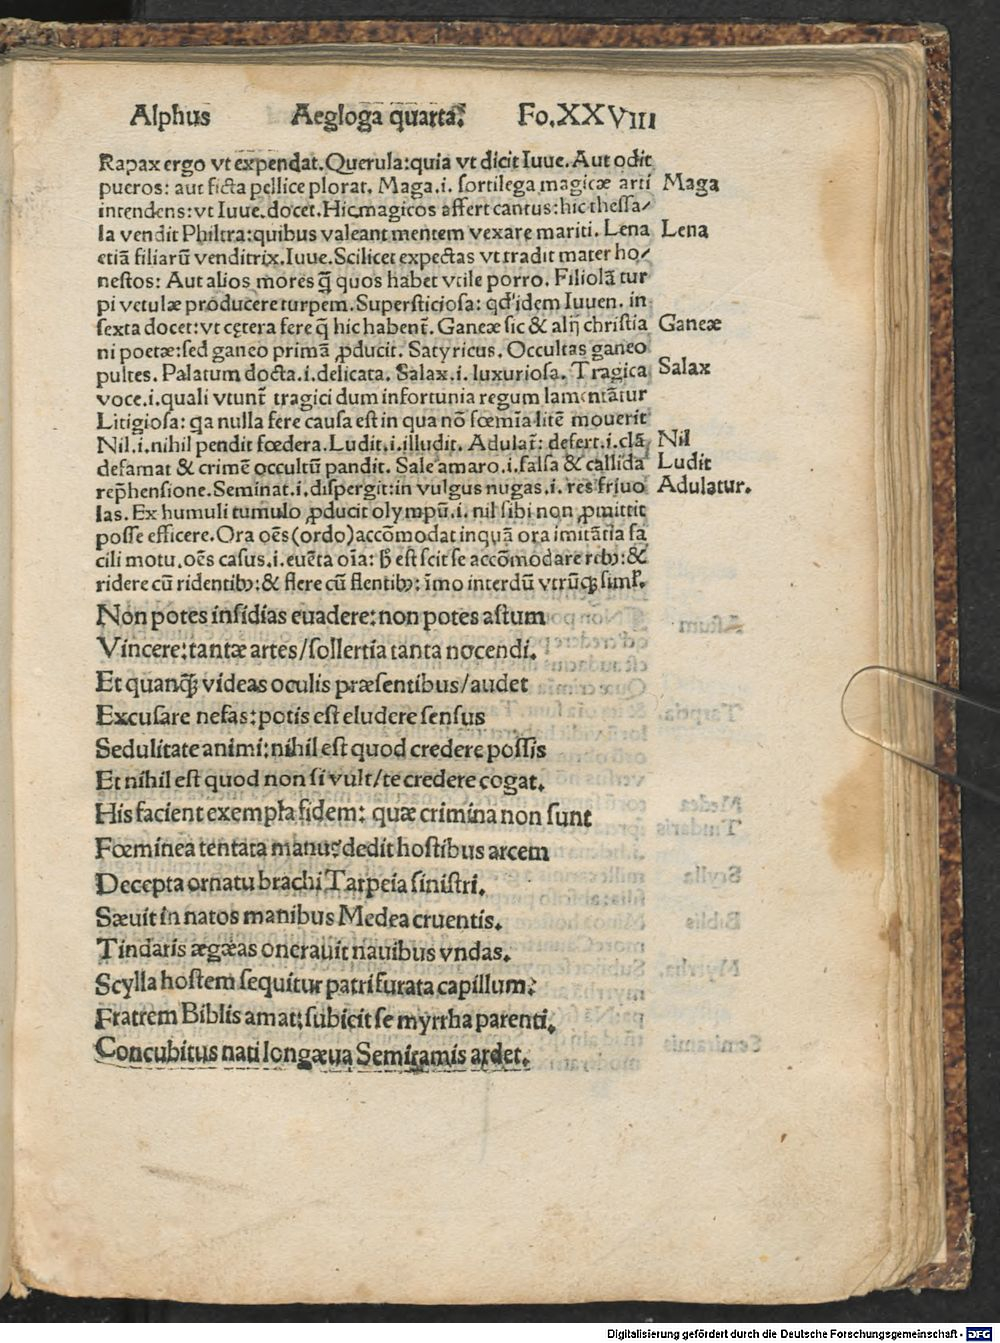 Alphus Aegloga quarta. Fo.XXVIII
Rapax ergo vt expendat. Querula: quia vt dicit Iuue. Aut odit
pueros: aut ficta pellice plorat. Maga.i. sortilega magicæ arti Maga
intendens: vt Iuue. docet. Hic magicos affert cantus: hic thessa/
la vendit Philtra: quibus valeant mentem vexare mariti. Lena Lena
etiā filiarū venditrix. Iuue. Scilicet expectas vt tradit mater ho/
nestos: Aut alios mores q̄ quos habet vtile porro. Filiolā tur
pi vetulæ producere turpem. Supersticiosa: qd' idem Iuuen. in
sexta docet: vt cetera fere q̄ hic habent̄. Ganeæ sic & alij christia Ganeæ
ni poetæ: sed ganeo primā ꝓducit. Satyricus. Occultas ganeo
pultes. Palatum docta.i. delicata. Salax.i. luxuriosa. Tragica Salax
voce.i. quali vtunt̄ tragici dum infortunia regum lamentātur
Litigiosa: qa nulla fere causa est in qua nō fœmīa litē mouerit
Nil.i. nihil pendit fœdera. Ludit.i. illudit. Adulat̄: defert.i. clā Nil
defamat & crimē occultū pandit. Sale amaro.i. falsa & callida Ludit
rep̄hensione. Seminat.i. dispergit: in vulgus nugas.i. res friuo Adulatur.
las. Ex humuli tumulo ꝓducit olympū.i. nil sibi non ꝓmittit
posse efficere. Ora oēs (ordo) accōmodat inquā ora imitātia fa
cili motu. oēs casus.i. euēta oīa: hͦ est scit se accōmodare rebꝰ: &
ridere cū ridentibꝰ: & flere cū flentibꝰ: īmo interdū vtrūqꝫ simł.
Non potes insidias euadere: non potes astum
Vincere: tantæ artes/sollertia tanta nocendi.
Et quanqꝫ videas oculis præsentibus/audet
Excusare nefas: potis est eludere sensus
Sedulitate animi: nihil est quod credere possis
Et nihil est quod non si vult/te credere cogat.
His facient exempła fidem: quæ crimina non sunt
Fœminea tentata manu? dedit hostibus arcem
Decepta ornatu brachi Tarpeia sinistri.
Sæuit in natos manibus Medea cruentis.
Tindaris ægæas onerauit nauibus vndas.
Scylla hostem sequitur patri furata capillum?
Fratrem Biblis amat: subicit se myrrha parenti.
Concubitus nati longæua Semiramis ardet.
Digitalisierung gefördert durch die Deutsche Forschungsgemeinschaft - DFG